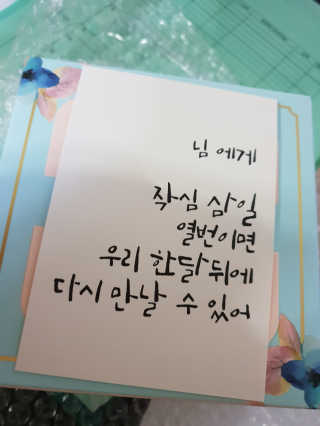 님에게
작심 삼일
열번이면
우리 한달뒤에
다시 만날 수 있어